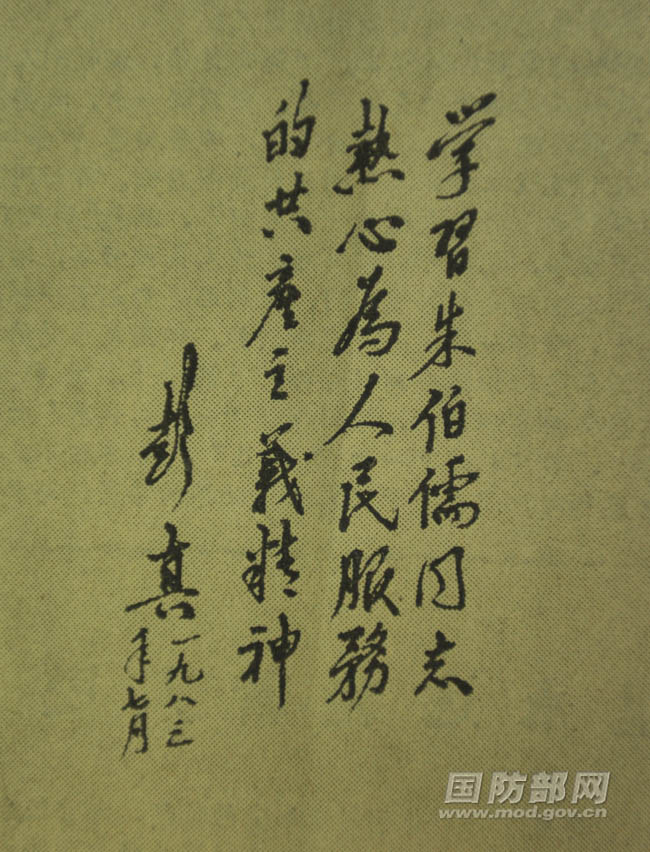 学習朱伯儒同志
熱心為人民服務
的共產主義精神
彭真
一九八三
年七月
国防部网
www.mod.gov.cn